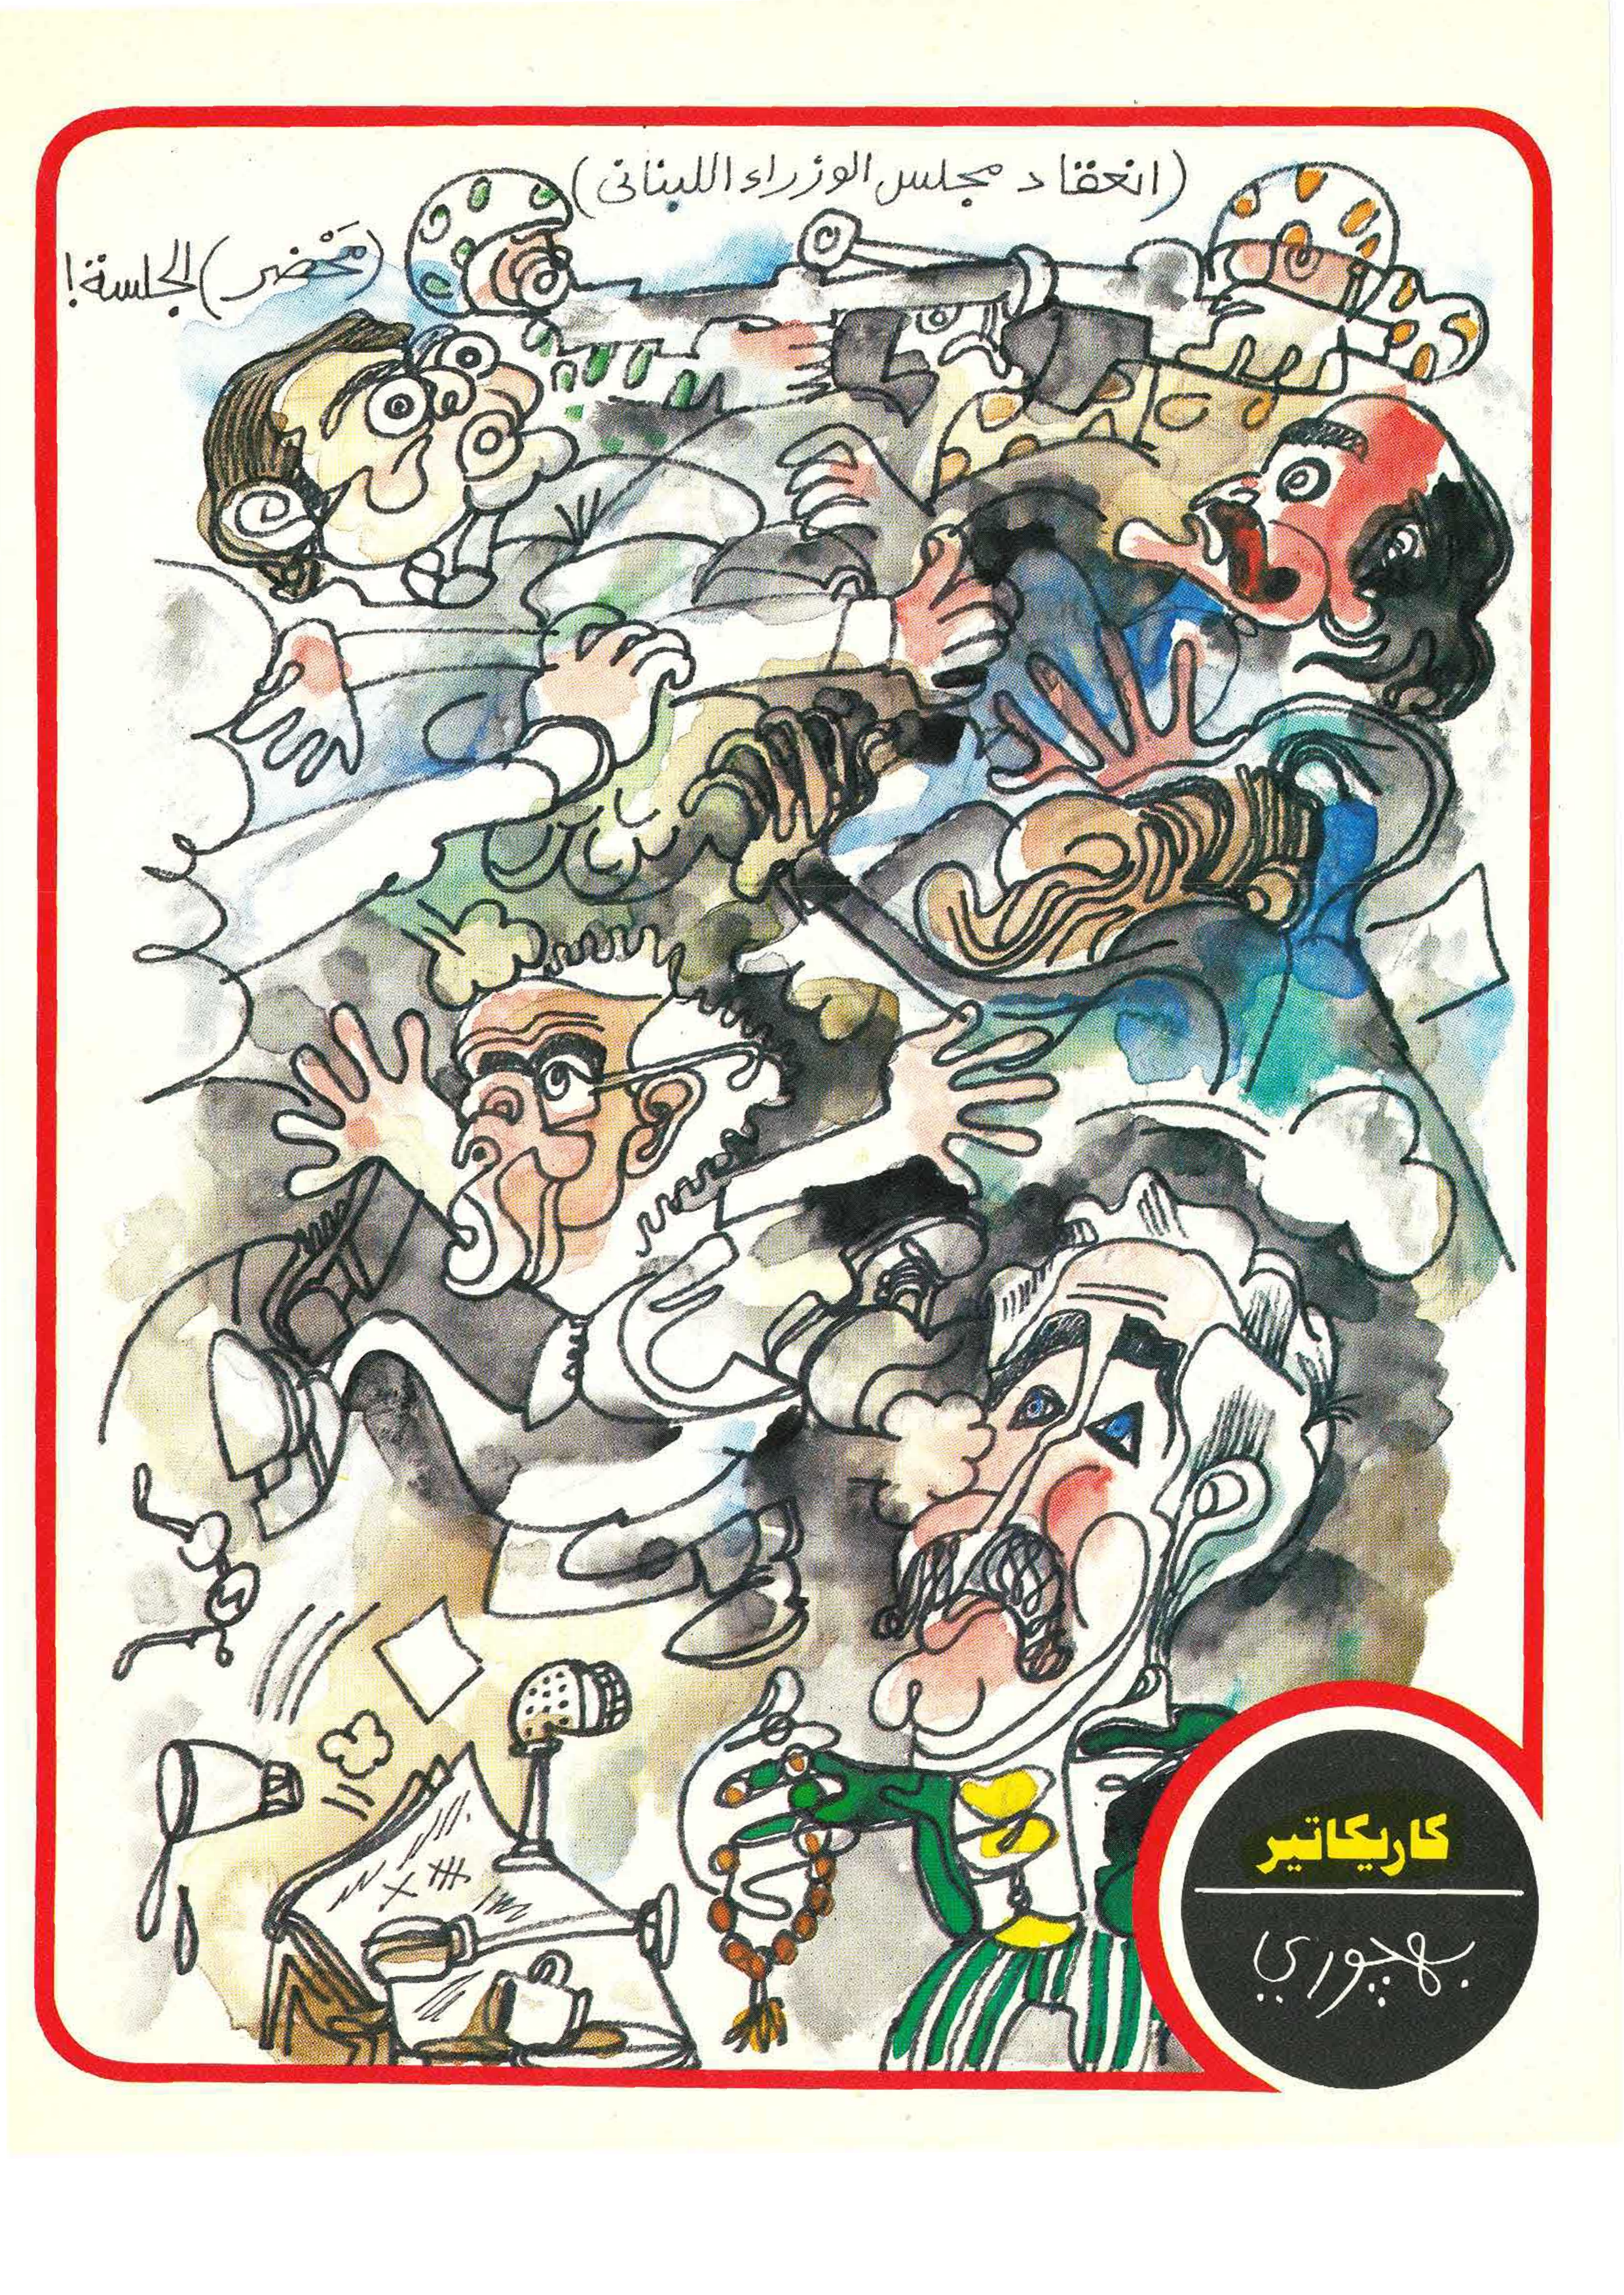 (انعقاد مجلس الوزراء اللبنانى)
(مَحْضر) الجلسة!
كاريكاتير
بهچوري